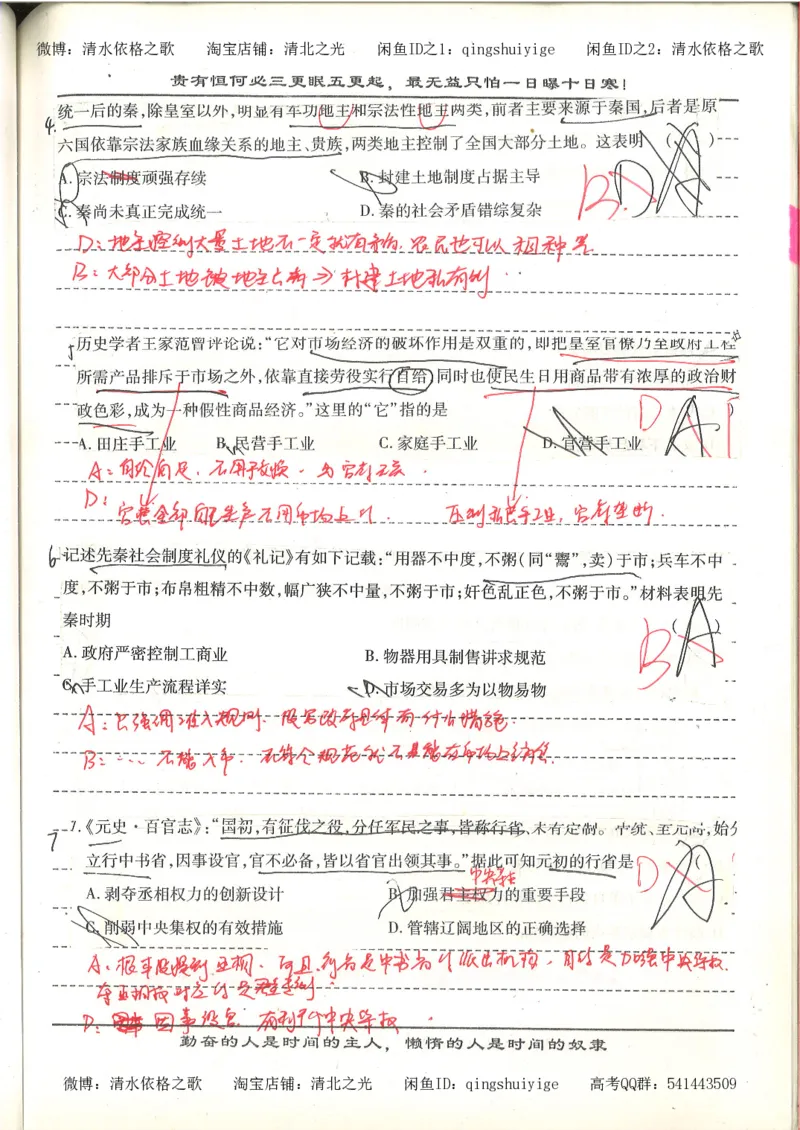 微博：清水依格之歌 淘宝店铺：清北之光 闲鱼ID之1：qingshuiyige 闲鱼ID之2：清水依格之歌
贵有恒何必三更眠五更起，最无益只怕一日曝十日寒！
4.
统一后的秦，除皇室以外，明显有军功地主和宗法性地主两类，前者主要来源于秦国，后者是原
六国依靠宗法家族血缘关系的地主、贵族，两类地主控制了全国大部分土地。这表明（ ）
A.宗法制度顽强存续 B.封建土地制度占据主导
C.秦尚未真正完成统一 D.秦的社会矛盾错综复杂
B D A
D：地主控制大量土地不一定就有矛盾，农民也可以租种
B：大部分土地被地主占有 → 封建土地私有制
5
历史学者王家范曾评论说：“它对市场经济的破坏作用是双重的，即把皇室官僚乃至政府工程
所需产品排斥于市场之外，依靠直接劳役实行自给，同时也使民生日用商品带有浓厚的政治财
政色彩，成为一种假性商品经济。”这里的“它”指的是
D A
A.田庄手工业 B.民营手工业 C.家庭手工业 D.官营手工业
A：自给自足，不用于交换
D：官营全部自配生产不用市场上 压制私营手工业，官府垄断.
6
记述先秦社会制度礼仪的《礼记》有如下记载：“用器不中度，不粥（同“鬻”，卖）于市；兵车不中
度，不粥于市；布帛粗精不中数，幅广狭不中量，不粥于市；奸色乱正色，不粥于市。”材料表明先
秦时期 （ ）
B A
A.政府严密控制工商业 B.物器用具制售讲求规范
C.手工业生产流程详实 D.市场交易多为以物易物
A：只强调准入规则，没写政府具体有什么措施.
B：…… 不粥于市，不符合规范的不能在市场上销售.
7
7.《元史·百官志》：“国初，有征伐之役，分任军民之事，皆称行省，未有定制。中统、至元间，始分
立行中书省，因事设官，官不必备，皆以省官出领其事。”据此可知元初的行省是
中央集
D A
A.剥夺丞相权力的创新设计 B.加强君主权力的重要手段
C.削弱中央集权的有效措施 D.管辖辽阔地区的正确选择
A：根本没提到丞相，而且行省是中书省的派出机构，目的是加强中央集权.
D：因事设官 有利于中央集权
勤奋的人是时间的主人，懒惰的人是时间的奴隶
微博：清水依格之歌 淘宝店铺：清北之光 闲鱼ID：qingshuiyige 高考QQ群：541443509